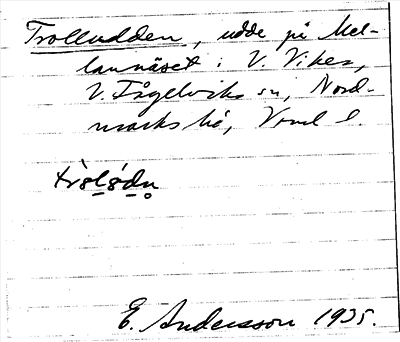 Trolludden, udde på Mel-
lannäset i V. Vikes,
V. Fågelviks sn, Nord-
marks hd, Vrml l.
tròlúdn
E. Andersson 1935.